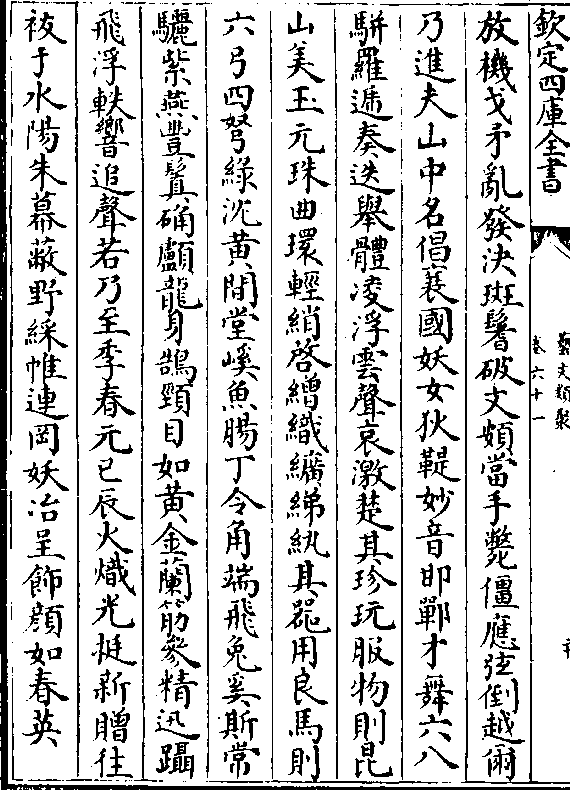 欽定四庫全書
藝文類聚
卷六十一
放機戈矛亂發決斑鬐破文頞當手斃僵應弦倒越爾
乃進夫山中名倡襄國妖女狄鞮妙音邯鄲才舞六八
駢羅遞奏迭舉體凌浮雲聲哀激楚其珍玩服物則昆
山美玉元珠曲環輕綃啓繒織纊綈紈其器用良馬則
六弓四弩綠沈黄間堂嵠魚腸丁令角端飛兔奚斯常
驪紫燕豐鬐确顱龍身鵠頸目如黄金蘭筋參精迅躡
飛浮軼響追聲若乃至季春元巳辰火熾光挺新贈往
祓于水陽朱幕蔽野綵帷連岡妖冶呈飾顔如春英